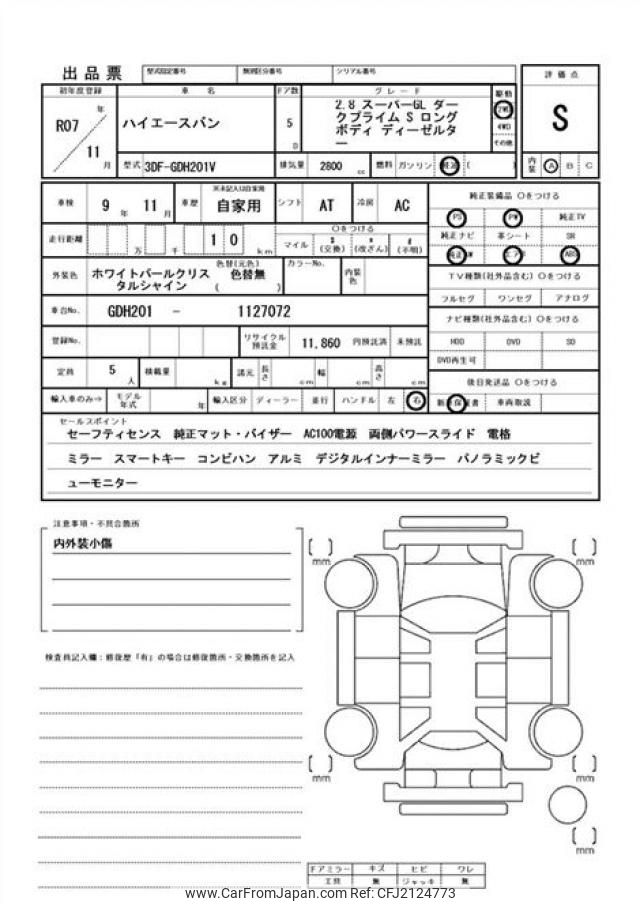 出品票 型式指定番号 類別区分番号 シリアル番号
評価点
初年度登録 車 名 ドア数 グレード 駆動
R07 年 11 月
ハイエースバン
5 D
2.8 スーパーGL ダー
クプライム S ロング
ボディ ディーゼルタ
ー
4WD
その他
S
型式 3DF-GDH201V 排気量 2800 cc 燃料 ガソリン ( )
内装 A B C
車検 9 年 11 月 車歴 ※未記入は自家用 自家用 シフト AT 冷房 AC
純正装備品 〇をつける
PS PW 純正TV
純正ナビ 革シート SR
ABS
走行距離 万 千 1 0 km
〇をつける
マイル $ (交換) * (改ざん) # (不明)
外装色 ホワイトパールクリス
タルシャイン
色替(元色)
色替無
( )
カラーNo. 内装色
TV種類(社外品含む) 〇をつける
フルセグ ワンセグ アナログ
車台No. GDH201 - 1127072
ナビ種類(社外品含む) 〇をつける
HDD DVD SD
DVD再生可
登録No. リサイクル預託金 11,860 円預託済 未預託
定員 5 人 積載量 kg 諸元 長さ cm 幅 cm 高さ cm
後日発送品 〇をつける
車両取説
輸入車のみ⇒ モデル年式 年 輸入区分 ディーラー 並行 ハンドル 左 右
セールスポイント
セーフティセンス 純正マット・バイザー AC100電源 両側パワースライド 電格
ミラー スマートキー コンビハン アルミ デジタルインナーミラー パノラミックビ
ューモニター
注意事項・不具合箇所
内外装小傷
検査員記入欄:修復歴「有」の場合は修復箇所・交換箇所を記入
[ ] mm [ ] mm
[ ] mm [ ] mm
[ ] mm
ドアミラー キズ ヒビ ワレ
工具 無 ジャッキ 無
www.CarFromJapan.com CFJ2124773